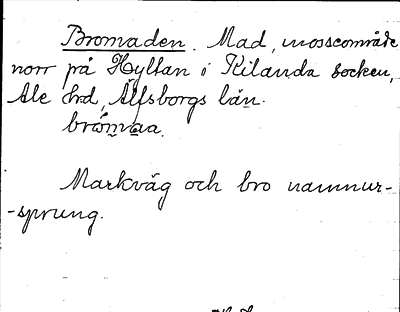 Bromaden. Mad, mosseområde
norr på Hyltan i Kilanda socken,
Ale hd, Älfsborgs län.
brómaa.
Markväg och bro namnur-
-sprung.